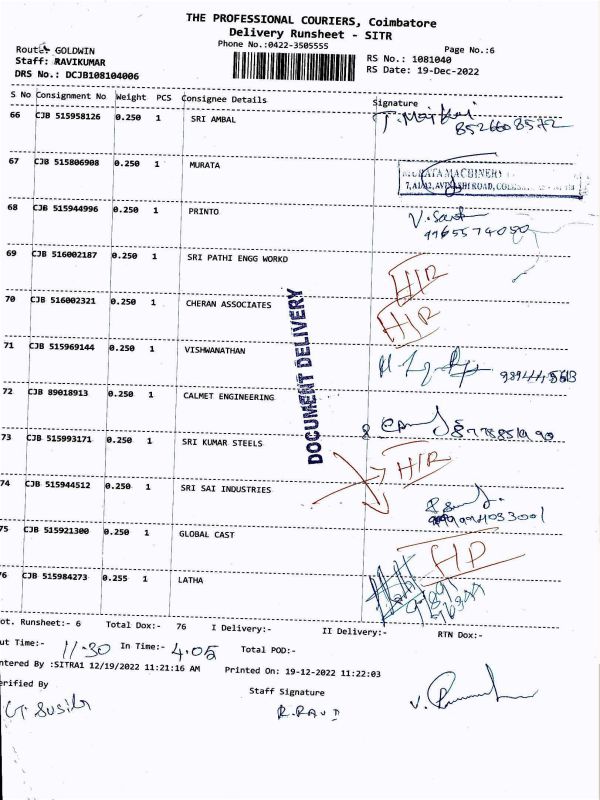 THE PROFESSIONAL COURIERS, Coimbatore
Delivery Runsheet - SITR
Phone No.:0422-3505555
Page No.:6
Route: GOLDWIN
RS No.: 1081040
Staff: RAVIKUMAR
RS Date: 19-Dec-2022
DRS No.: DCJB108104006
S No Consignment No Weight PCS Consignee Details Signature
66 CJB 515958126 0.250 1 SRI AMBAL
67 CJB 515806908 0.250 1 MURATA
MURATA MACHINERY
ROAD,
68 CJB 515944996 0.250 1 PRINTO
9965574050
69 CJB 516002187 0.250 1 SRI PATHI ENGG WORKD
70 CJB 516002321 0.250 1 CHERAN ASSOCIATES
71 CJB 515969144 0.250 1 VISHWANATHAN
72 CJB 89018913 0.250 1 CALMET ENGINEERING
DOCUMENT DELIVERY
73 CJB 515993171 0.250 1 SRI KUMAR STEELS
74 CJB 515944512 0.250 1 SRI SAI INDUSTRIES
75 CJB 515921300 0.250 1 GLOBAL CAST
76 CJB 515984273 0.255 1 LATHA
ot. Runsheet:- 6 Total Dox:- 76 I Delivery:- II Delivery:- RTN Dox:-
ut Time:- 11-30 In Time:- 4.05 Total POD:-
ntered By :SITRA1 12/19/2022 11:21:16 AM Printed On: 19-12-2022 11:22:03
erified By Staff Signature